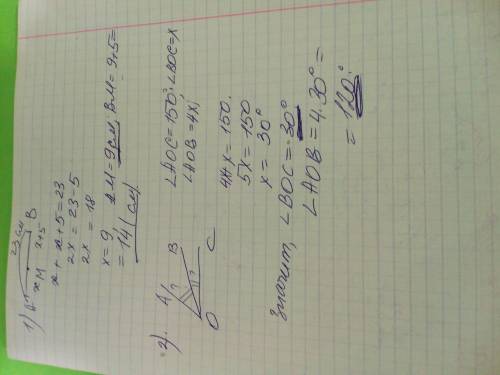 1) A 23 см B
x M x+5
x + x + 5 = 23
2x = 23 - 5
2x = 18
x = 9 AM = 9 см; BM = 9 + 5 =
= 14 (см)
2). A B C O
∠AOC = 150°; ∠BOC = x
∠AOB = 4x;
4x + x = 150.
5x = 150
x = 30°
Значит, ∠BOC = 30°
∠AOB = 4 · 30° =
= 120°.